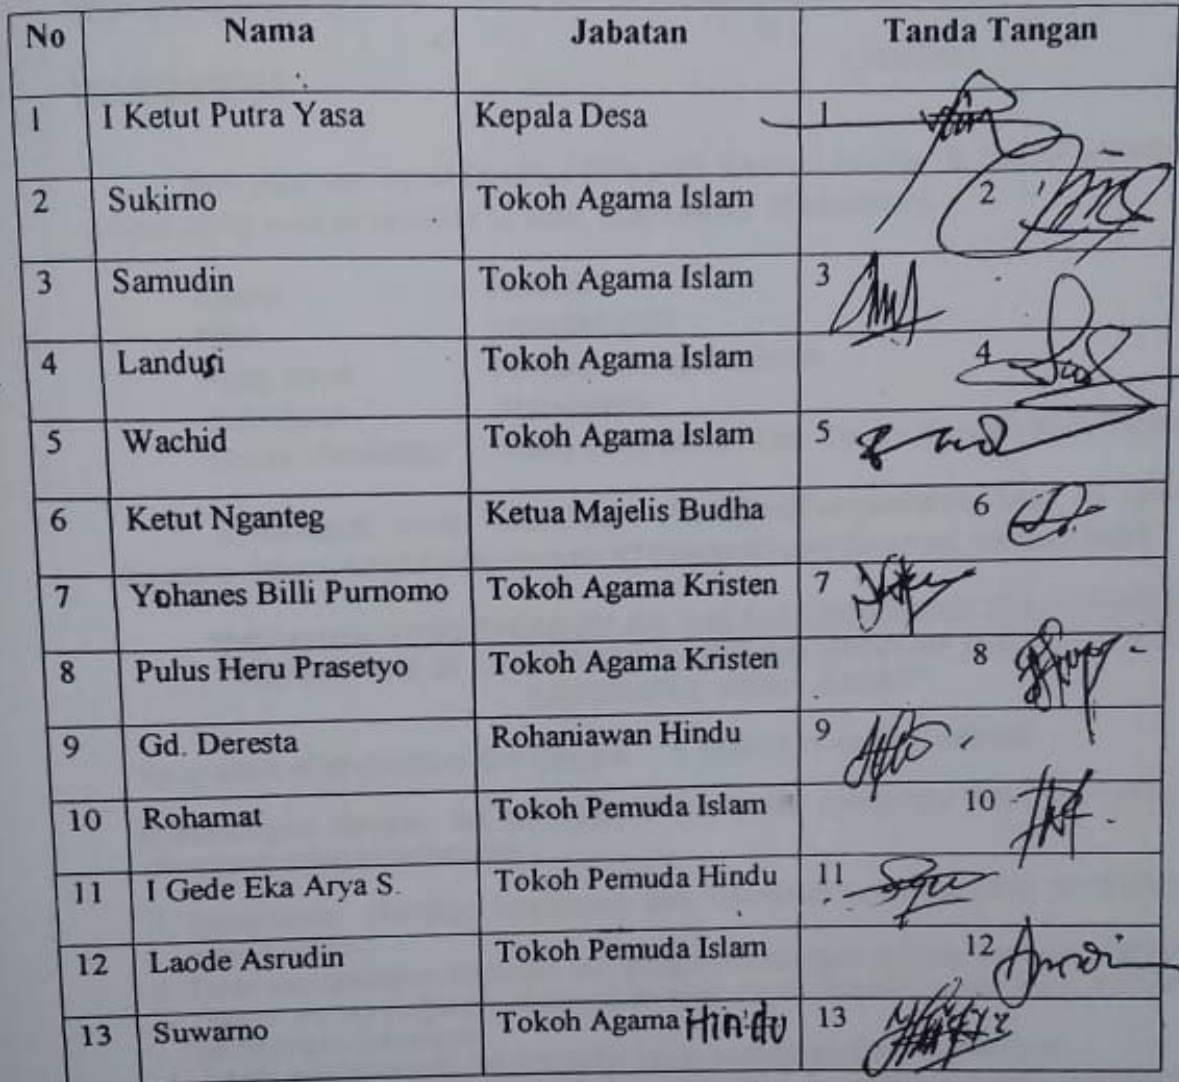 No Nama Jabatan Tanda Tangan
1 I Ketut Putra Yasa Kepala Desa 1
2 Sukirno Tokoh Agama Islam 2
3 Samudin Tokoh Agama Islam 3
4 Landusi Tokoh Agama Islam 4
5 Wachid Tokoh Agama Islam 5
6 Ketut Nganteg Ketua Majelis Budha 6
7 Yohanes Billi Purnomo Tokoh Agama Kristen 7
8 Pulus Heru Prasetyo Tokoh Agama Kristen 8
9 Gd. Deresta Rohaniawan Hindu 9
10 Rohamat Tokoh Pemuda Islam 10
11 I Gede Eka Arya S. Tokoh Pemuda Hindu 11
12 Laode Asrudin Tokoh Pemuda Islam 12
13 Suwarno Tokoh Agama Hindu 13